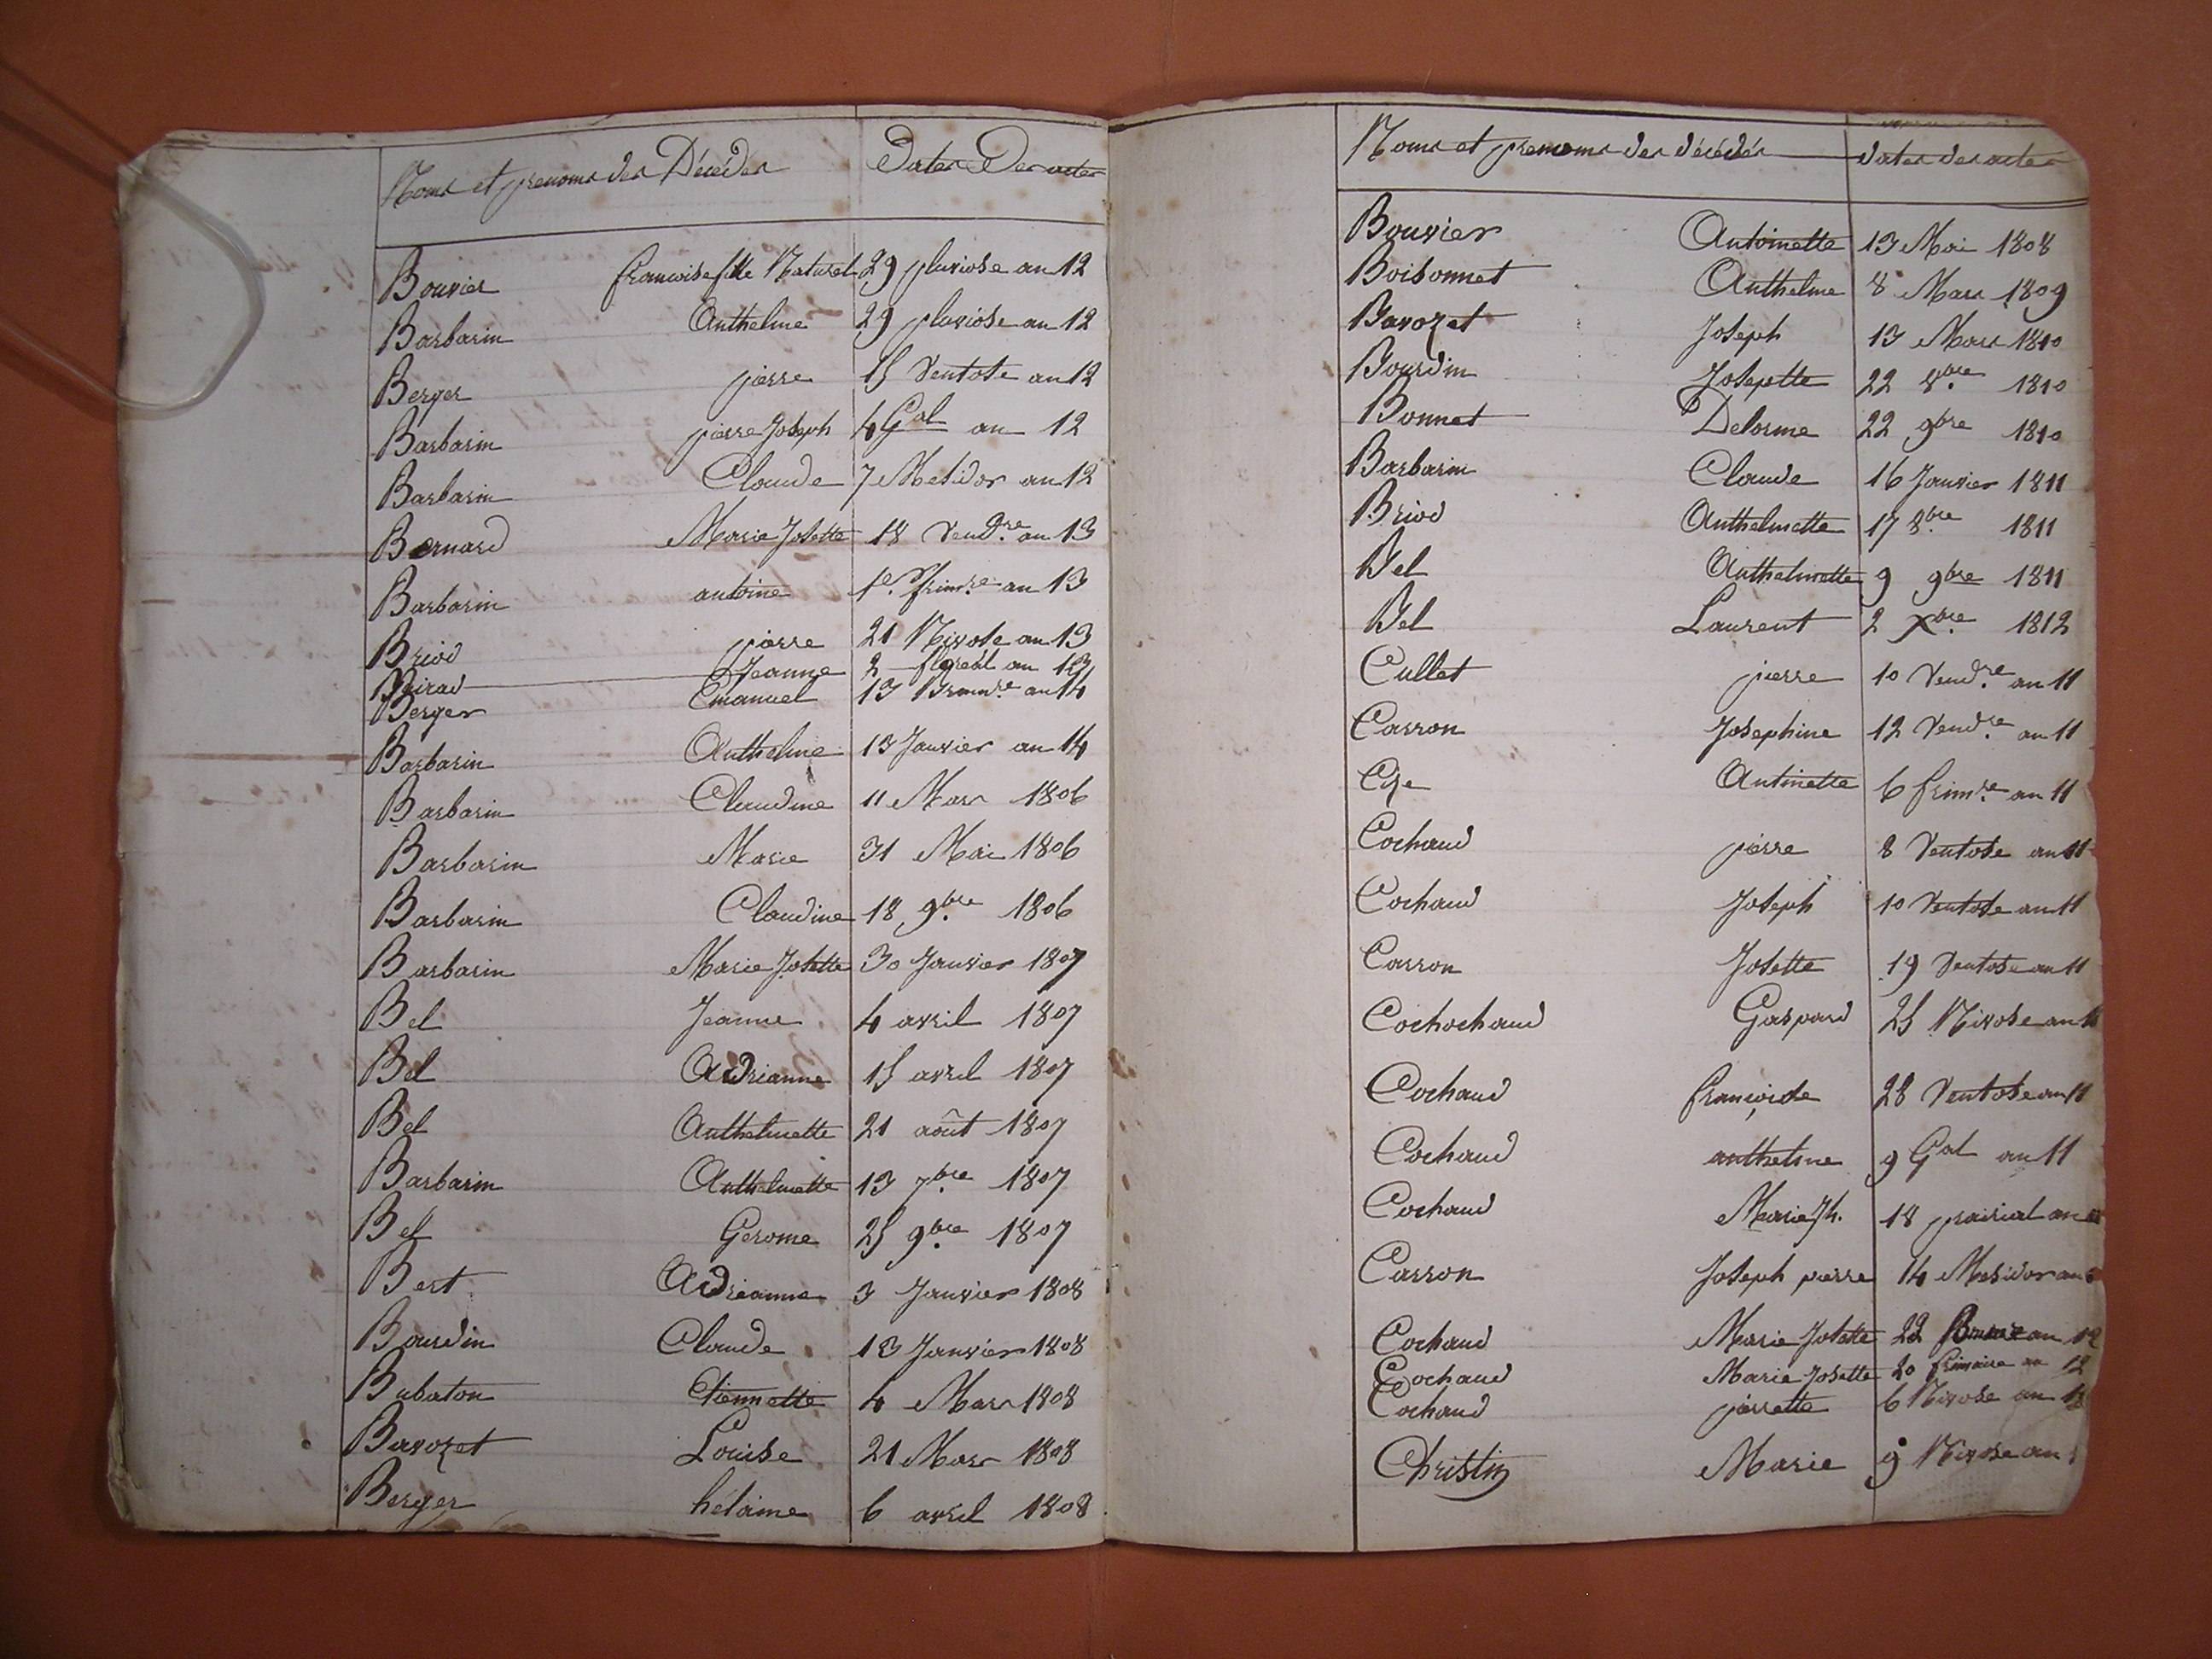 Noms et prenoms des Décédés Dates Des actes
Bouvier francoise fille Naturel 29 pluviose an 12
Barbarin Anthelme 29 pluviose an 12
Berger pierre 15 Ventose an 12
Barbarin pierre Joseph 4 Gal an 12
Barbarin Claude 7 Mesidor an 12
Bernard Marie Josette 18 Vendre an 13
Barbarin antoine 1er frimre an 13
Briod pierre 21 Nivose an 13
Jeanne 2 floréal an 13
Berger Emanuel 13 Brumre an 14
Barbarin Anthelme 13 Janvier an 14
Barbarin Claudine 11 Mars 1806
Barbarin Marie 31 Mai 1806
Barbarin Claudine 18 9bre 1806
Barbarin Marie Josette 30 Janvier 1807
Bel Jeanne 4 avril 1807
Bel Adrianne 15 avril 1807
Bel Anthelmette 21 août 1807
Barbarin Anthelmette 13 7bre 1807
Bel Gerome 25 9bre 1807
Bert Adrianne 3 Janvier 1808
Bourdin Claude 13 Janvier 1808
Bubaton Etiennette 4 Mars 1808
Bavozet Louise 21 Mars 1808
Berger hélaine 6 avril 1808
Noms et prenoms des décédés dates des actes
Bouvier Antoinette 13 Mai 1808
Boisonnet Anthelme 8 Mars 1809
Bavozet Joseph 13 Mars 1810
Bourdin Josephte 22 8bre 1810
Bonnet Delorme 22 9bre 1810
Barbarin Claude 16 Janvier 1811
Briod Anthelmette 17 8bre 1811
Bel Anthelmette 9 9bre 1811
Bel Laurent 2 Xbre 1812
Cullet pierre 10 Vendre an 11
Carron Josephine 12 Vendre an 11
Antinette 6 frimre an 11
Cochaud pierre 8 Ventose an 11
Cochaud Joseph 10 Ventose an 11
Carron Josette 19 Ventose an 11
Cochochaud Gaspard 25 Nivose an 11
Cochaud françoise 28 Ventose an 11
Cochaud anthelme 9 Gal an 11
Cochaud Marie Jh. 18 prairial an
Carron Joseph pierre 14 Mesidor an
Cochaud Marie Josette 22 an 12
Cochaud Marie Josette 20 frimaire an 12
Cochaud pierrette 6 Nivose an 12
Christin Marie 9 Nivose an